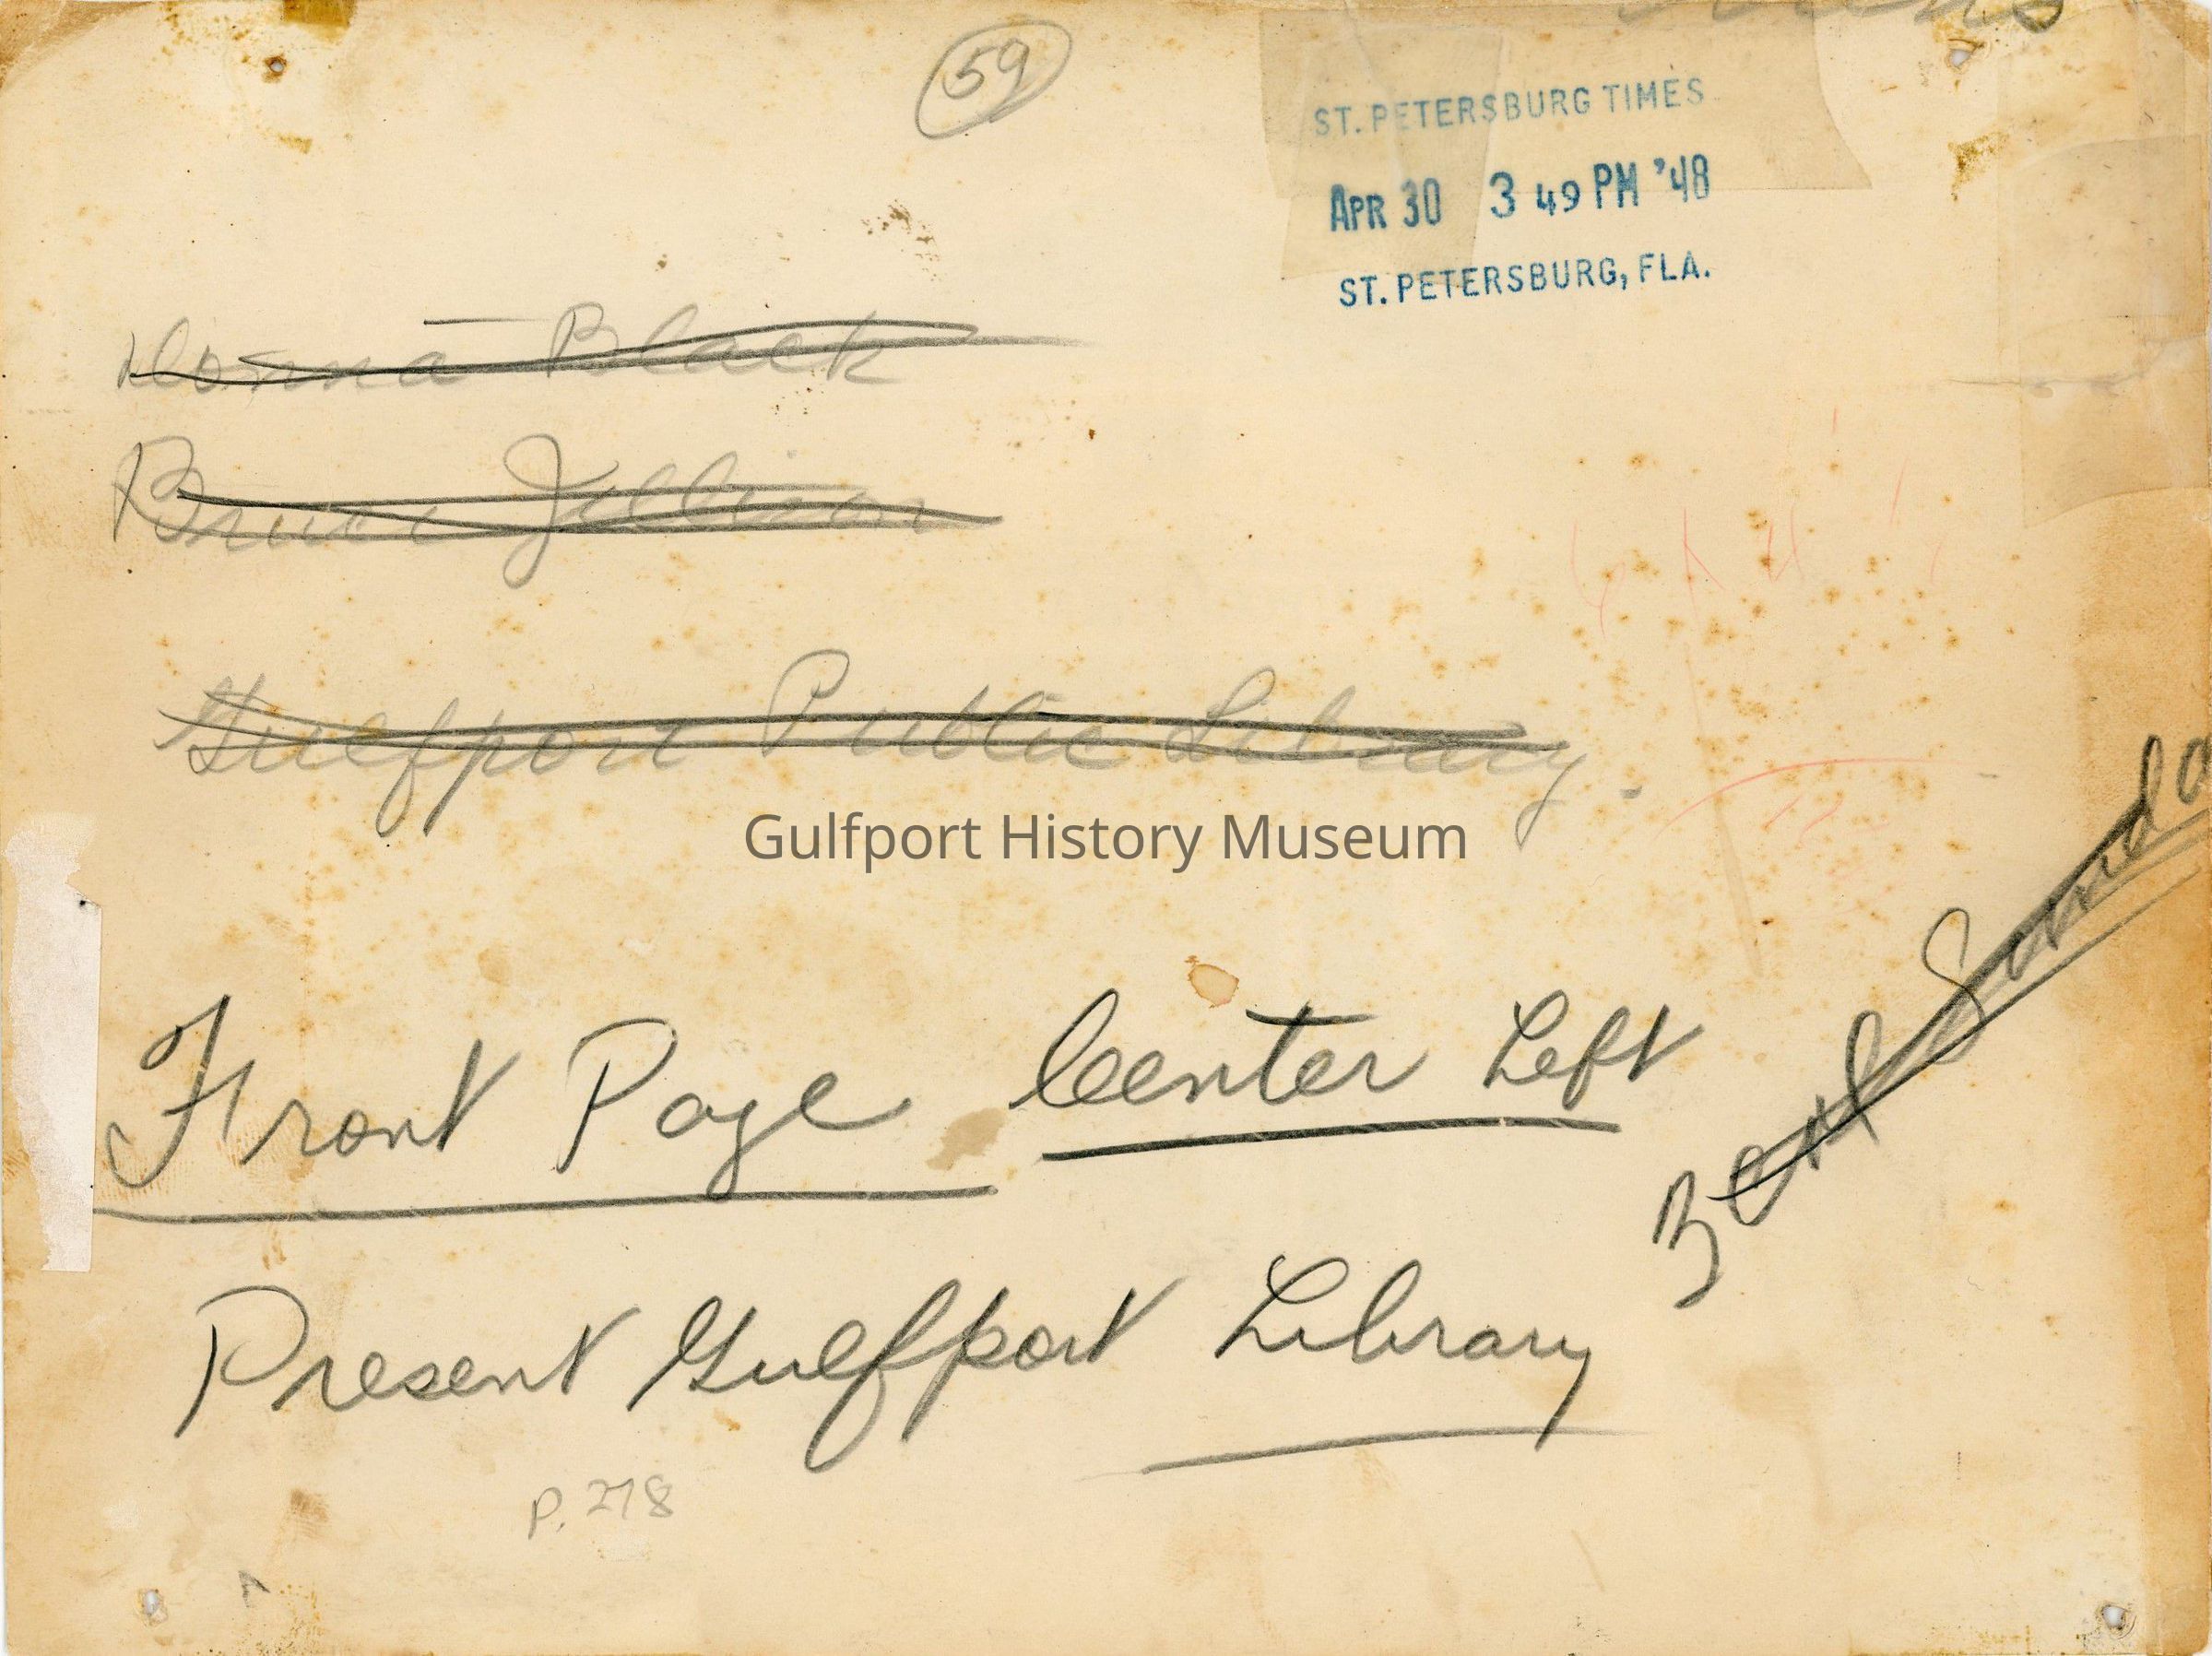 59
ST. PETERSBURG TIMES
APR 30 3 49 PM '48
ST. PETERSBURG, FLA.
Donna Black
Bruce Jillison
Gulfport Public Library.
Gulfport History Museum
Front Page Center Left
Present Gulfport Library
P. 278